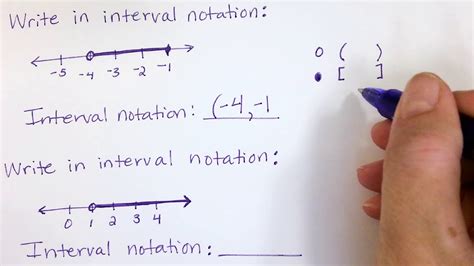 Write in interval notation:
-5 -4 -3 -2 -1
o ( )
• [ ]
Interval notation: (-4,-1
Write in interval notation:
0 1 2 3 4
Interval notation: ________